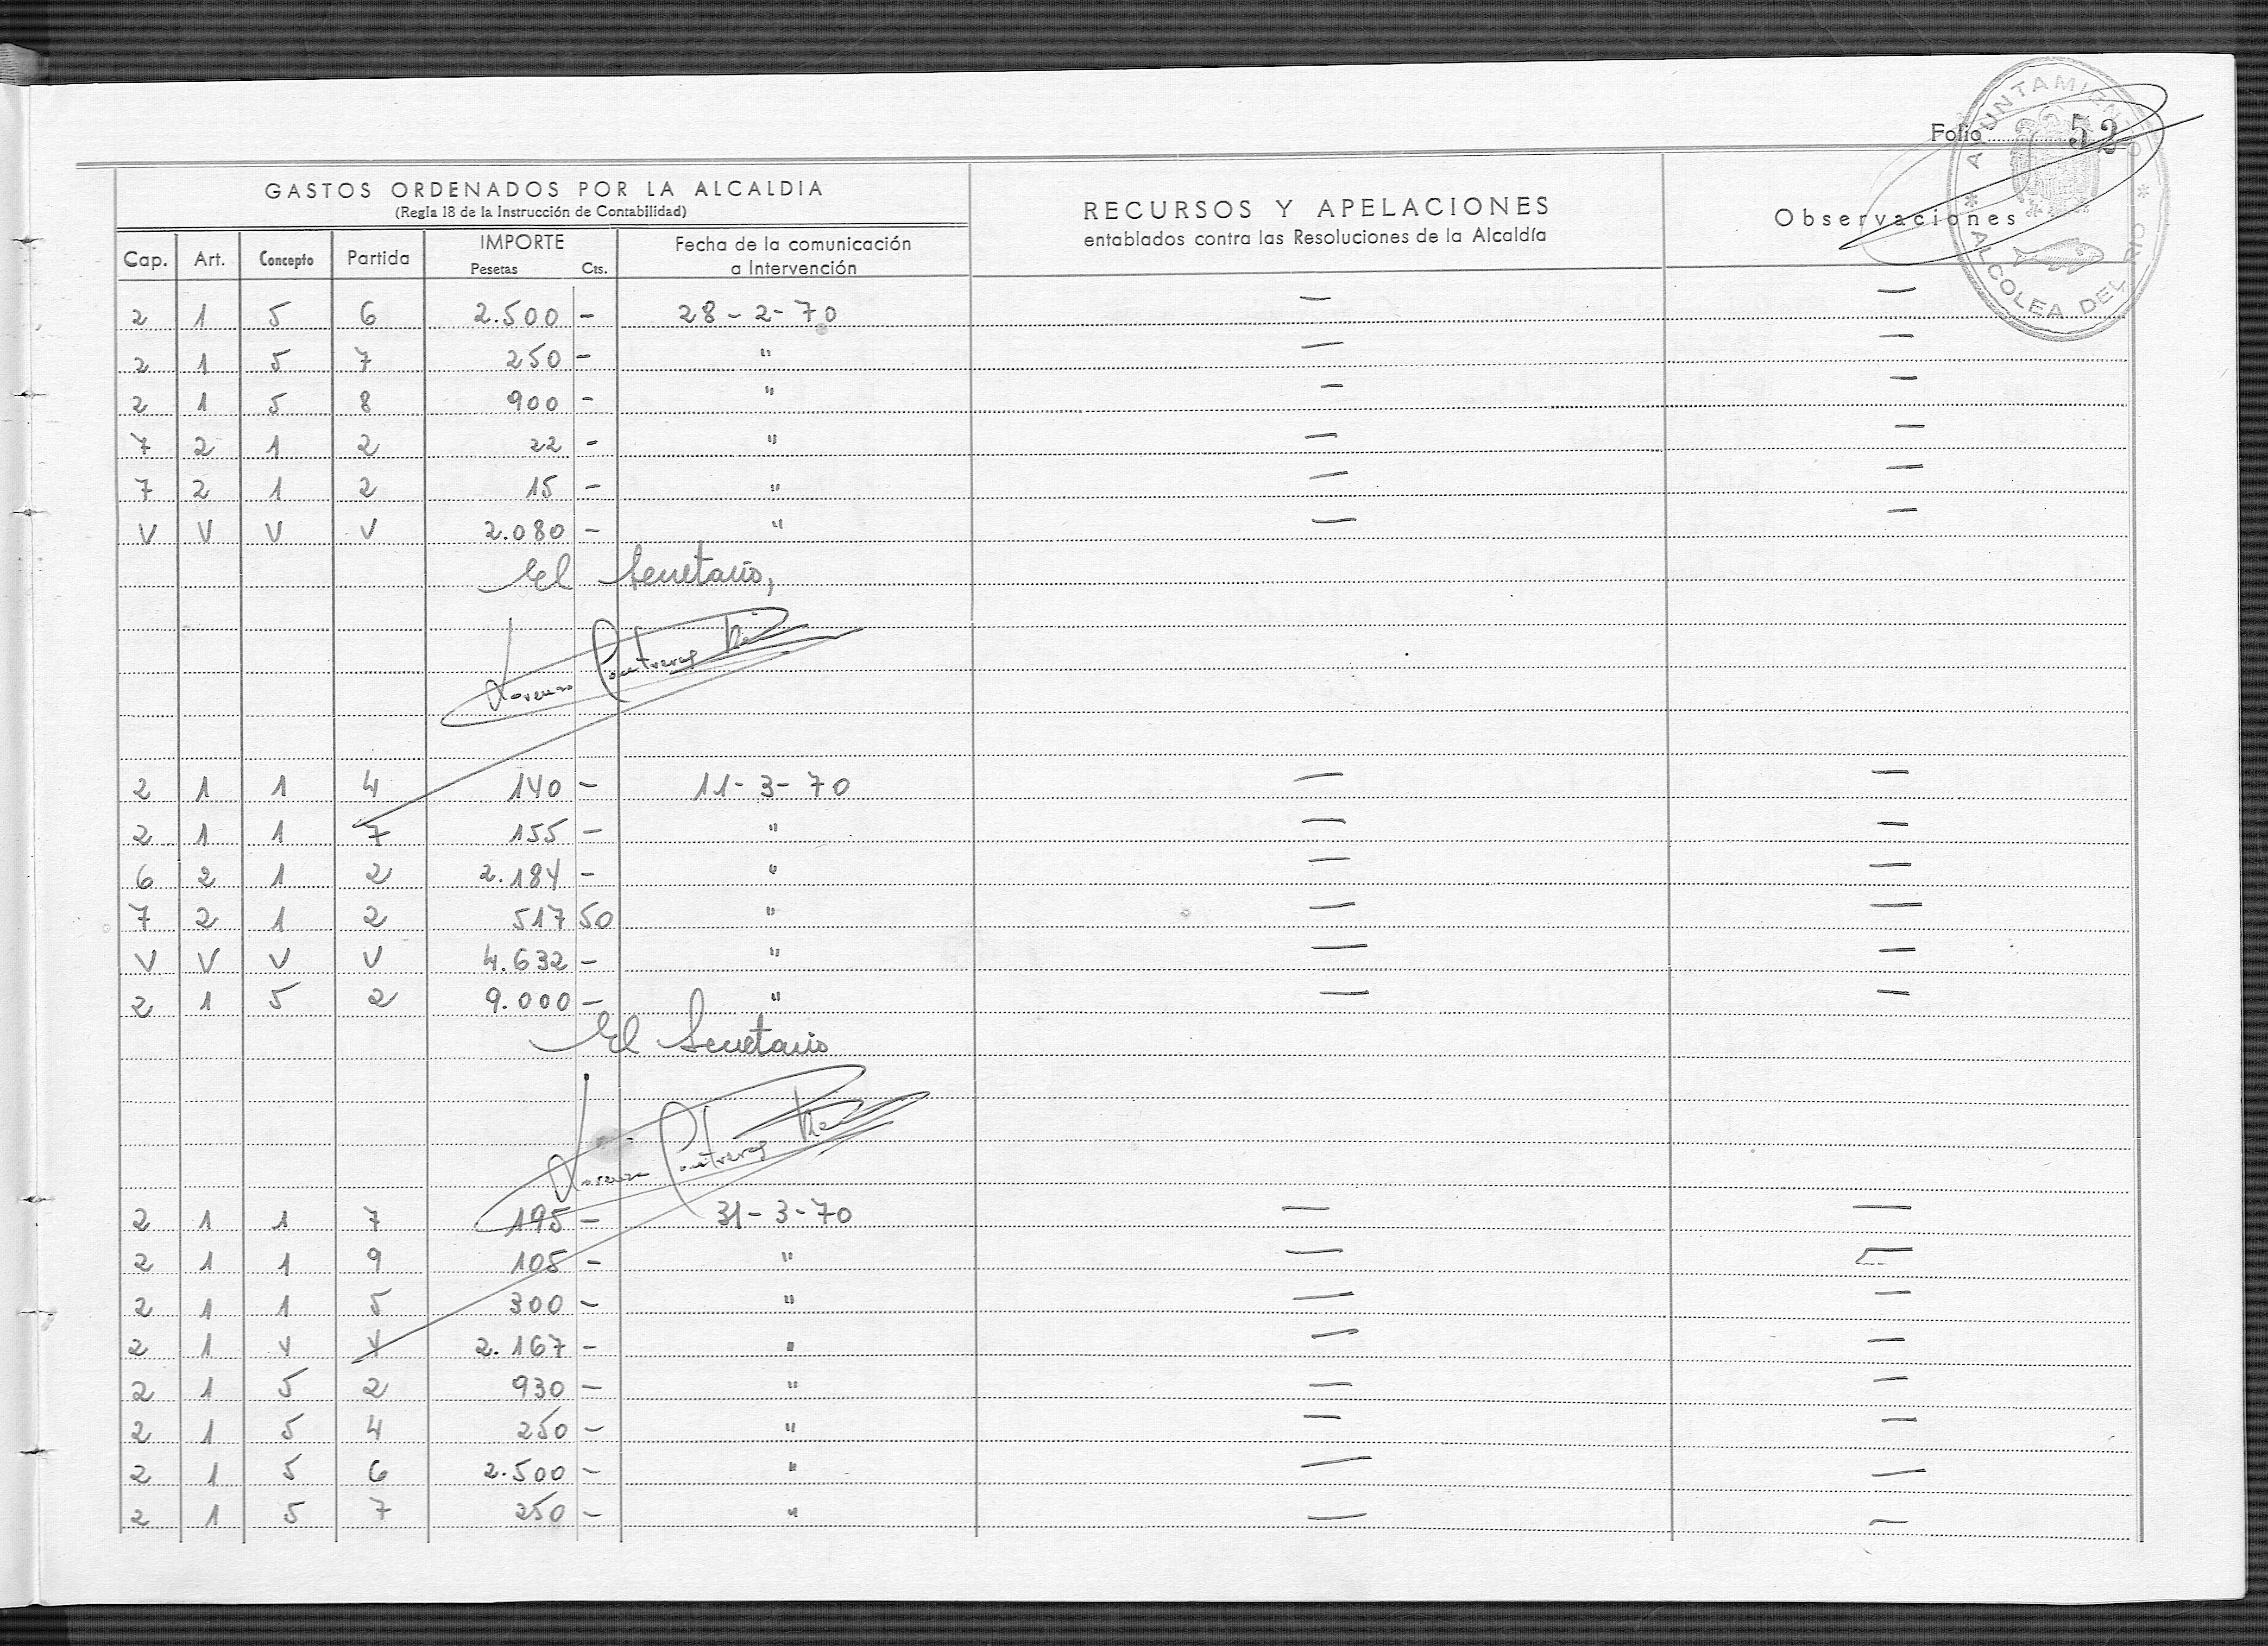 Folio 52
AYUNTAMIENTO * ALCOLEA DEL RIO *
GASTOS ORDENADOS POR LA ALCALDIA
(Regla 18 de la Instrucción de Contabilidad)
RECURSOS Y APELACIONES
entablados contra las Resoluciones de la Alcaldía
Observaciones
Cap. Art. Concepto Partida IMPORTE Pesetas Cts. Fecha de la comunicación a Intervención
2 1 5 6 2.500 - 28-2-70 — —
2 1 5 7 250 - " — —
2 1 5 8 900 - " — —
7 2 1 2 22 - " — —
7 2 1 2 15 - " — —
V V V V 2.080 - " — —
El Secretario,
Lorenzo Contreras
2 1 1 4 140 - 11-3-70 — —
2 1 1 7 155 - " — —
6 2 1 2 2.184 - " — —
7 2 1 2 517 50 " — —
V V V V 4.632 - " — —
2 1 5 2 9.000 - " — —
El Secretario
Lorenzo Contreras
2 1 1 7 195 - 31-3-70 — —
2 1 1 9 105 - " — —
2 1 1 5 300 - " — —
2 1 4 4 2.167 - " — —
2 1 5 2 930 - " — —
2 1 5 4 250 - " — —
2 1 5 6 2.500 - " — —
2 1 5 7 250 - " — —